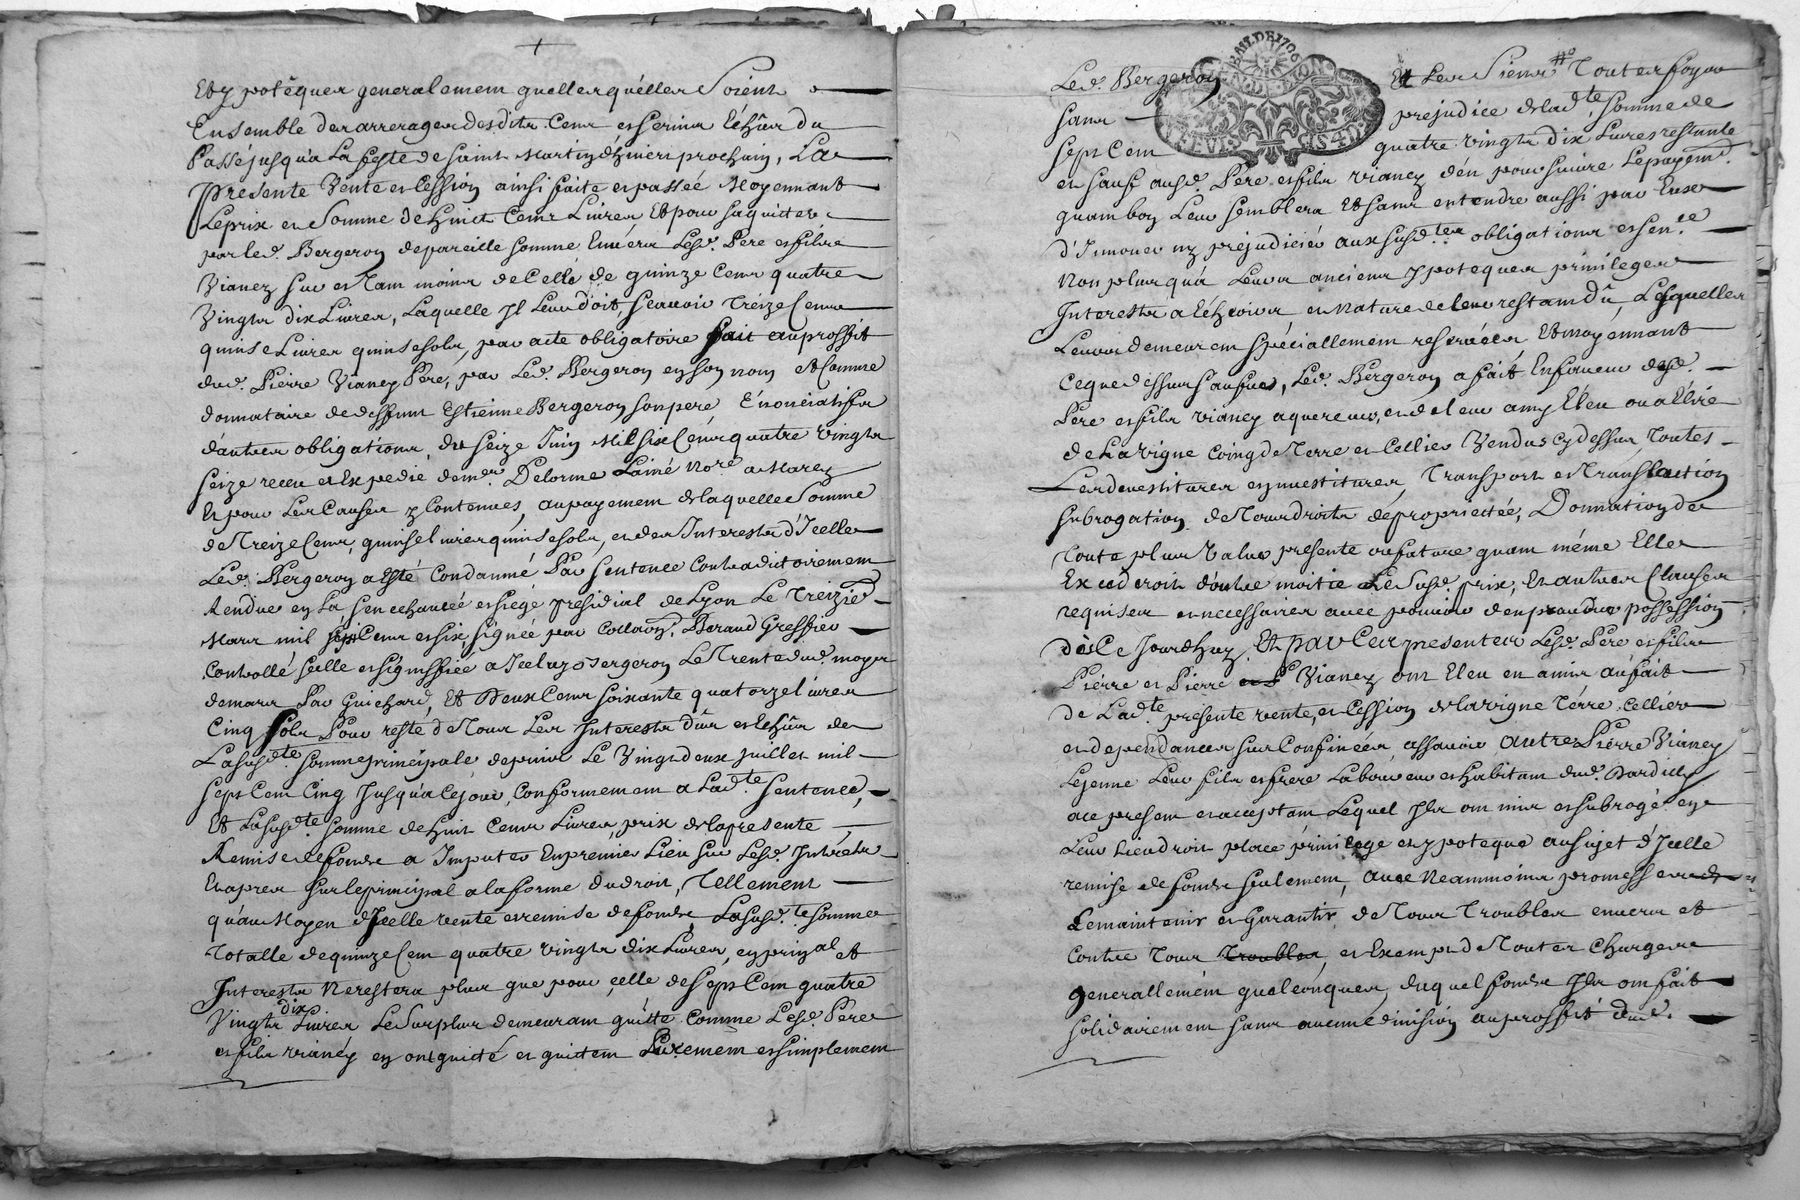 Et ypotéques generalement quelles quélles Soient
Ensemble des arrerages desdits Cens et servis Echûs du
Passé jusqua La feste de saint Martin d'hivert prochain, La
Presente Vente et Cession ainsi faite et passée Moyennant
Le prix et Somme de huict Cents Livres Et pour saquitter
par led. Bergeron depareille somme Envers Lesd. Pere et fils
Vianey sur et Tant moins de Celle de quinze Cens quatre
Vingts dix Livres, Laquelle Il Leur doit, scavoir Tréize Cens
quinse Livres quinse sols, par acte obligatoire fait au proffit
dud. Pierre Vianey Pere, par Led. Bergeron en son nom et Comme
donnataire de deffunt Estienne Bergeron son pere, Enonciatif
d'autres obligations, du seize Juin Mil six Cens quatre vingts
seize receu et Expedie de me. Delorme Lainé No.re a Marcy
Et pour Les Causes y Contenues, au payement de laquelle Somme
de Treize Cens, quinse livres quinse sols, et des Interests d'Icelle
Led. Bergeron a Esté Condamné Par sentence Contradictoirement
Rendue en La senechaucée et siegé présidial de Lyon Le Treizie.
Mars mil sept Cens et six, signée par Collaon. Beraud Greffier
Controllé scelle et signiffiée a Iceluy Bergeron Le Trente dud. moyes
de mars Par Guichard, Et Deux Cens soixante quatorze livres
Cinq sols Pour reste de Tous Les Interests dûs et Echûs de
La susd.te somme principale depuis Le Vingt deux Juillet mil
sept Cent Cinq Jusqu'a Cejour, Conformement a Lad.te sentence,
Et La susd.te somme de huit Cens Livres, prix de la presente
Remise de fonds a Imputer En premier Lieu sur Lesd. Intérêts
Et apres sur le principal a la forme du droit, Tellement
qu'au Moyen d'Icelle vente et remise de fonds La susd.te somme
Totalle de quinze Cent quatre vingts dix Livres, en prinpal et
Interests Ne restera plus que pour celle de Sept Cent quatre
Vingts dix Livres Le Surplus demeurant quitte Comme Lesd. Pere
et fils vianey en ont quicté et quittent Purement et simplement
Led. Bergeron Et Les Siens Toutesfoys
sans prejudice de lad.te somme de
sept Cent quatre vingts dix Livres restante
et sauf ausd. Pére et fils vianey d'en poursuivre Le payemt.
quant bon Leur semblera Et sans entendre aussi par Eux
d'Innover ny préjudicier aux susd.tes obligations et sen.ce
Non plus qu'à Leurs anciens ypoteques privileges
Interests a Echeoir, et Nature de leur restant Dû, Lesquelles
Leurs demeurent spéciallement reservées Et moyennant
Ceque dessus sauf, Led. Bergeron a fait En faveur desd.
Pére et fils vianey aquereurs, et de leur amy Eleu ou a Elire
de La vigne Coing de Terre et Cellier Vendus Cy dessus Toutes
Les devestitures et investitures, Transport et Translaction
subrogation de Tous droits de propriettée, Donnation de
Toute plus value presente ou future quant même Elle
Excederoit d'outre moitié Le Susd. prix, Et autres Clauses
requises et necessaires avec pouvoir d'en prendre possession
déz Ce Jourdhuy. Et par Ces presentes Lesd. Pere et fils
Pierre et Pierre Vianey ont Eleu en amis au fait
de Lad.te présente vente, et Cession de la vigne Térre Cellier
et dependances sur Confinées assavoir autre Pierre Vianey
Lejeune Leur fils et frere Laboureur et habitant dud. Dardilly
ace present et acceptant Lequel Ils ont mis et subrogé en
Leur Lieu droit place privilege et ypoteque au sujet d'Icelle
remise de fonds seulement, avec Neammoins promesse de
Lemaintenir et Garantir de Tous Troubles envers et
Contre Tous Troubles, et Exempt de Toutes Charges
generallement quelconques, duquel fonds Ils ont fait
solidairement sans aucune division au proffit dud.